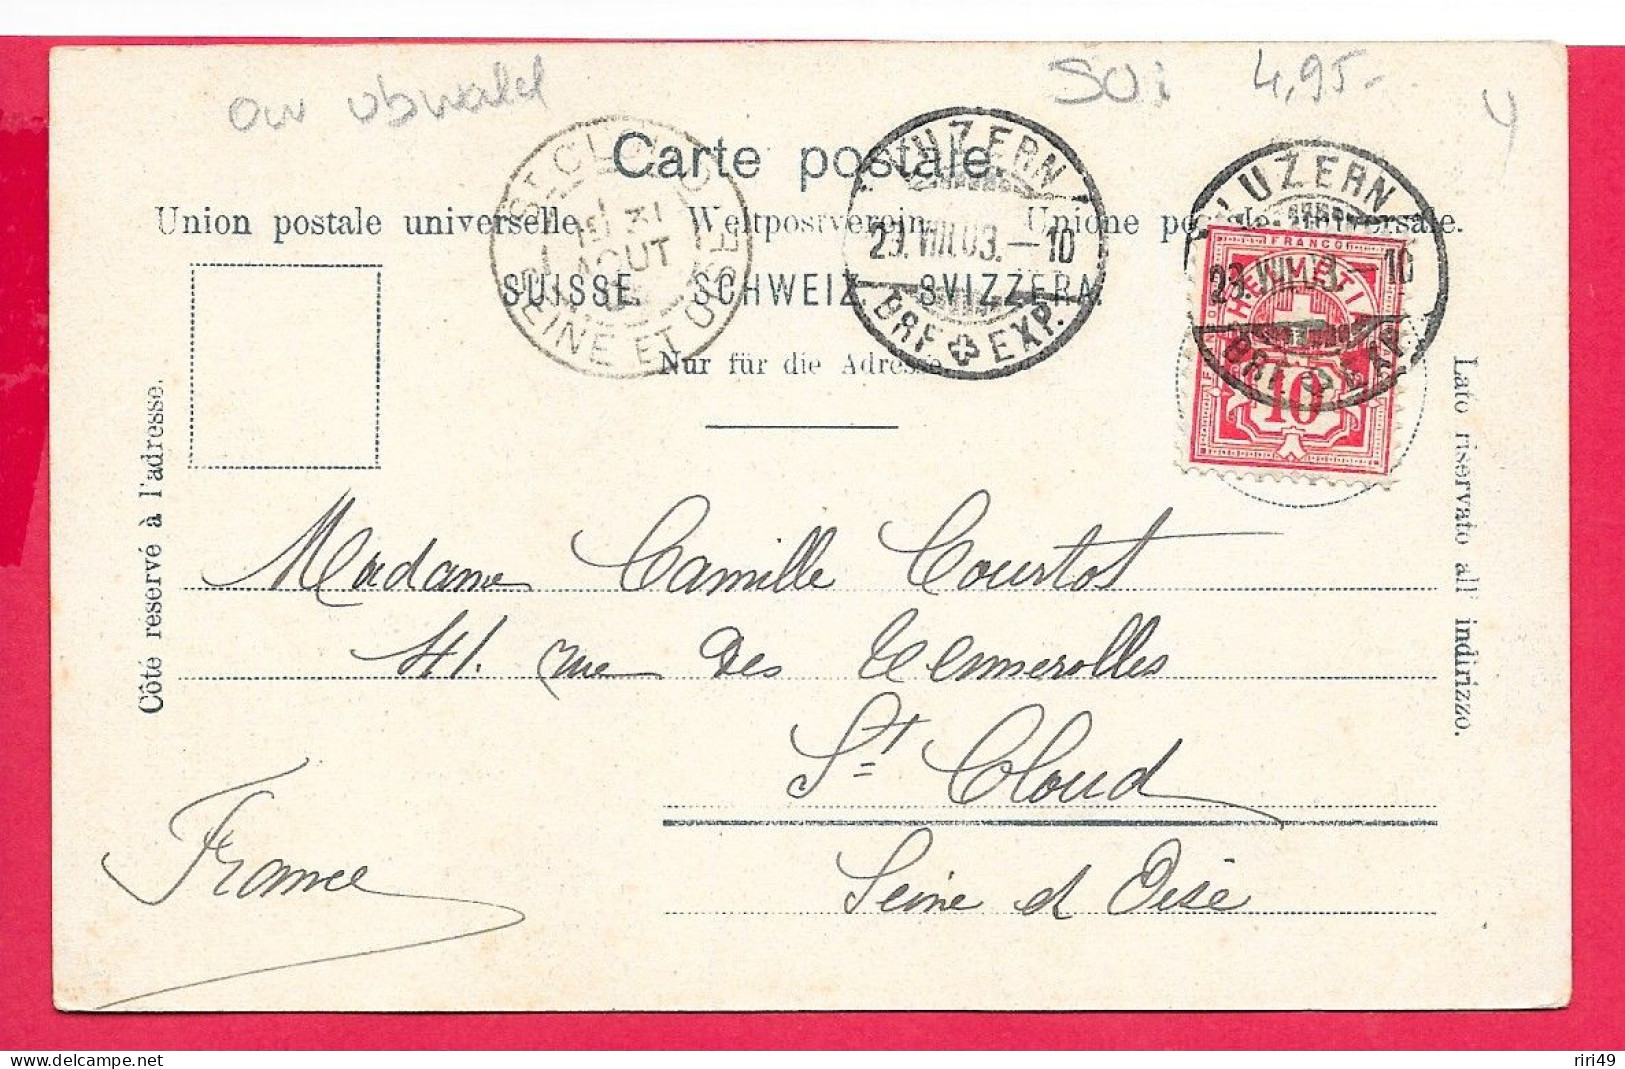 ow obwald
SUi 4,95.-
Carte postale.
Union postale universelle. Weltpostverein. Unione postale universale.
SUISSE. SCHWEIZ. SVIZZERA.
Nur für die Adresse.
ST CLOUD
31
AOUT
SEINE ET OISE
LUZERN
29.VIII.03.–10
BRF EXP.
LUZERN
29.VIII.03.–10
BRF EXP.
FRANCO
HELVETIA
10
Côté réservé à l'adresse.
Lato riservato all' indirizzo.
Madame Camille Courtot
41. rue des Tennerolles
St Cloud
Seine et Oise
France
riri49